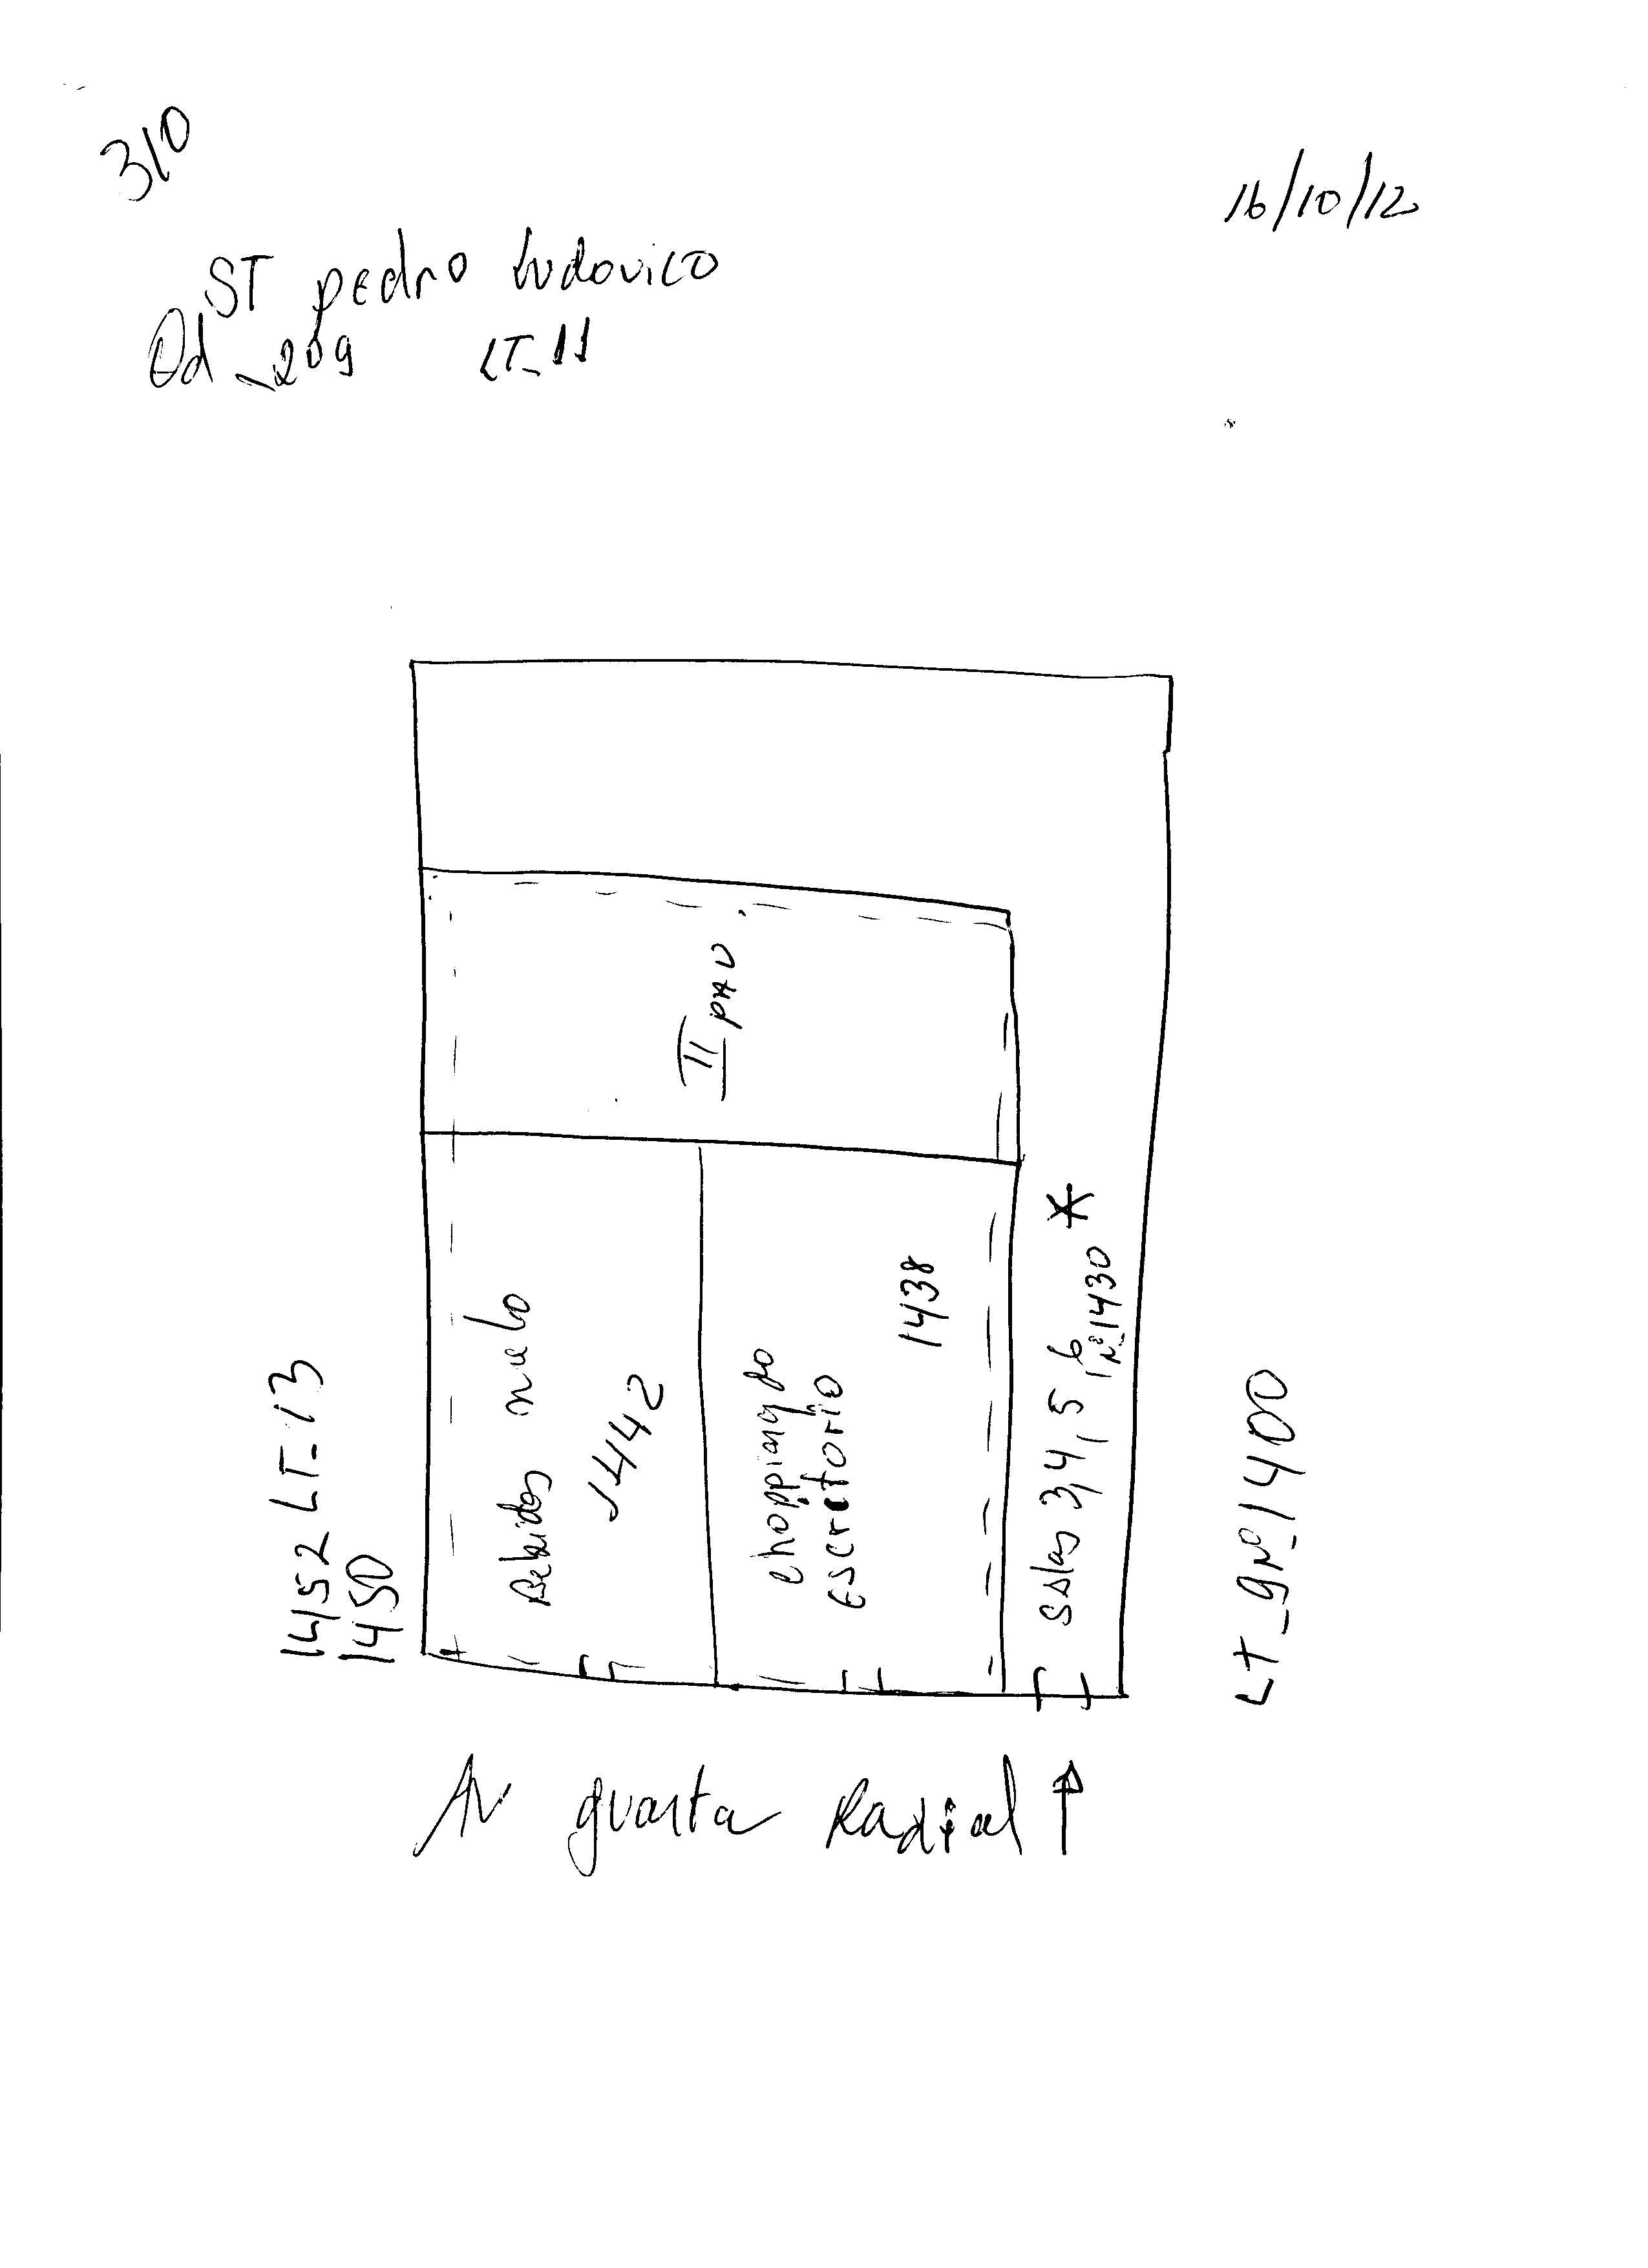 310
16/10/12
ST pedro Ludovico
Qd_209 LT_11
II PAV
1452 LT-13
1450
Bebidas melo
1442
Chopping do
Escretorio
1438
salas 3,4,5,6 *
Nº1430
LT_9Nº1400
Av quarta Radial